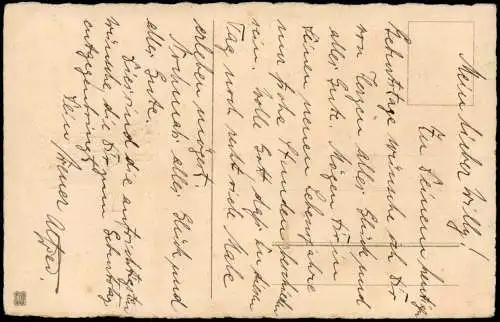 Mein lieber Willy!
Zu Deinem heutigen
Geburtstage wünsche ich Dir
von Herzen alles Glück und
alles Gute. Mögen Dir in
Deinem neuen Lebensjahre
nur frohe Stunden beschieden
sein. Wolle Gott daß Du diesen
Tag noch recht viele Male
erleben mögest.
Nochmals alles Glück und
alles Gute.
Dies sind die aufrichtigsten
Wünsche die Dir zum Geburtstag
entgegenbringt
Dein